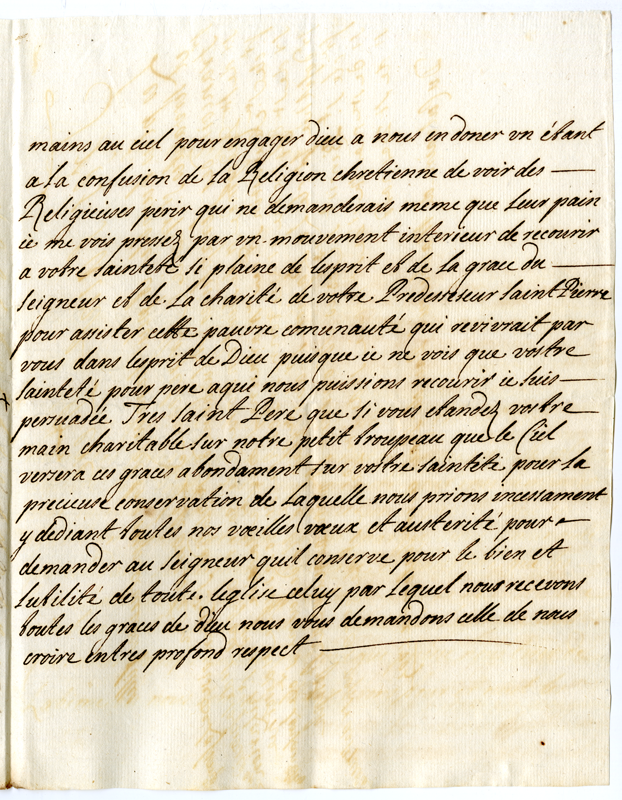 mains au ciel pour engager dieu a nous en doner vn étant
a la confusion de la Religion chretienne de voir des —
Religieuses perir qui ne demanderais meme que leur pain
ie me vois pressez par vn mouvement interieur de recourir
a votre sainteté si plaine de lesprit et de la grace du —
seigneur et de la charité de votre Predesseseur saint Pierre
pour assister cette pauvre comunauté qui revivrait par
vous dans lesprit de Dieu puisque ie ne vois que vostre
sainteté pour pere aqui nous puissions recourir ie suis —
persuadée Tres saint Pere que si vous etandez vostre —
main charitable sur notre petit troupeau que le Ciel
versera ces graces abondament sur vostre sainteté pour la
precieuse conservation de laquelle nous prions incessament
y dediant toutes nos vœilles vœux et austerité pour —
demander au seigneur quil conserve pour le bien et
lutilité de toute leglise celuy par lequel nous recevons
toutes les graces de dieu nous vous demandons celle de nous
croire entres profond respect —